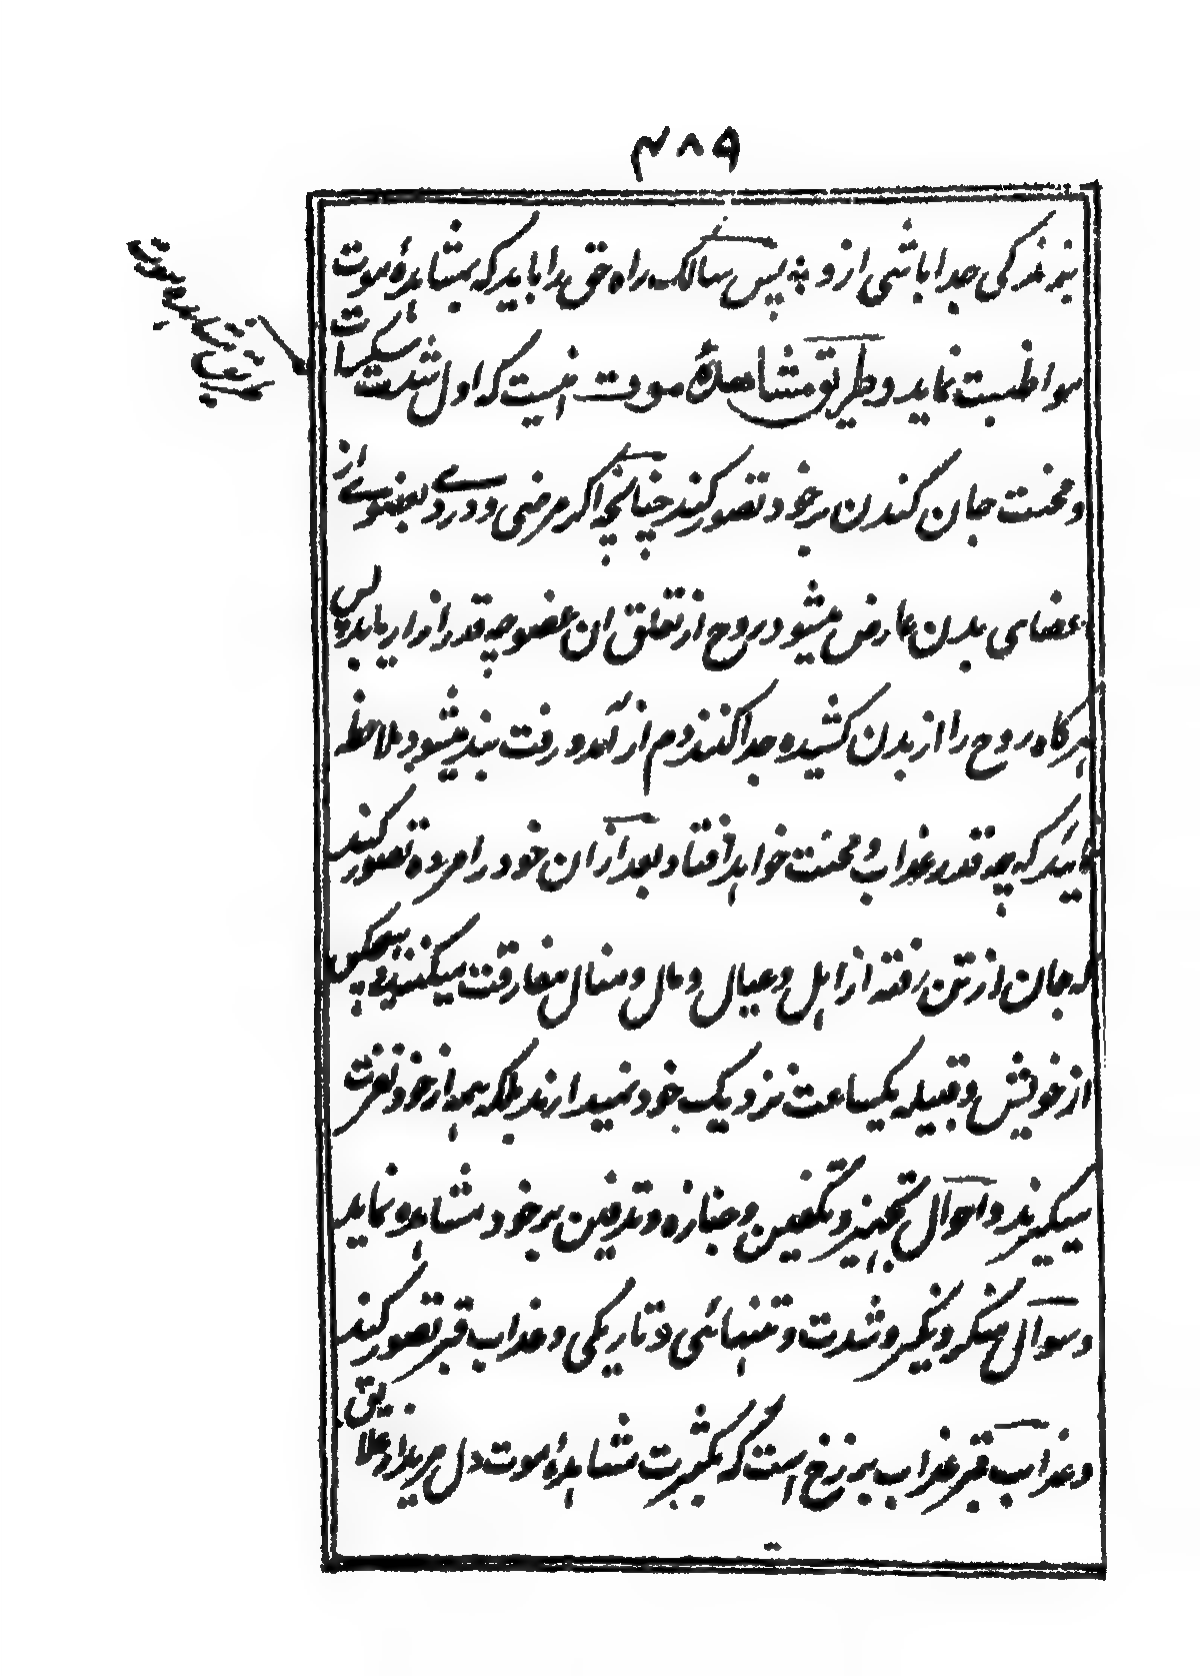 ۴۸۹
بزندگی جدا باشی ازو پس سالک راه حق را باید که بمشاهدهٔ موت
مواظبت نماید و طریق مشاهدهٔ موت اینست که اول شدت سکرات
و محنت جان کندن بر خود تصور کند چنانچه اگر مرضی و دردی بعضوی از
اعضای بدن عارض میشود روح از تعلق ان عضو چه قدر ازار یابد پس
هرگاه روح را از بدن کشیده جدا کنند و دم از آمد و رفت بند میشود ملاحظه
نماید که چه قدر عذاب و محنت خواهد افتاد و بعد از ان خود را مرده تصور کند
که جان از تن رفته از اهل و عیال و مال و منال مفارقت میکنند و هیچکس
از خویش و قبیله یکساعت نزدیک خود نمیدارند بلکه همه از خود نفرت
میگیرند و احوال تجهیز و تکفین و جنازه و تدفین بر خود مشاهده نماید
و سوال منکر و نکیر و شدت و تنهائی و تاریکی و عذاب قبر تصور کند
و عذاب قبر عذاب برزخ است که بکثرت مشاهدهٔ موت دل مرید از علایق
طریق مشاهده موت